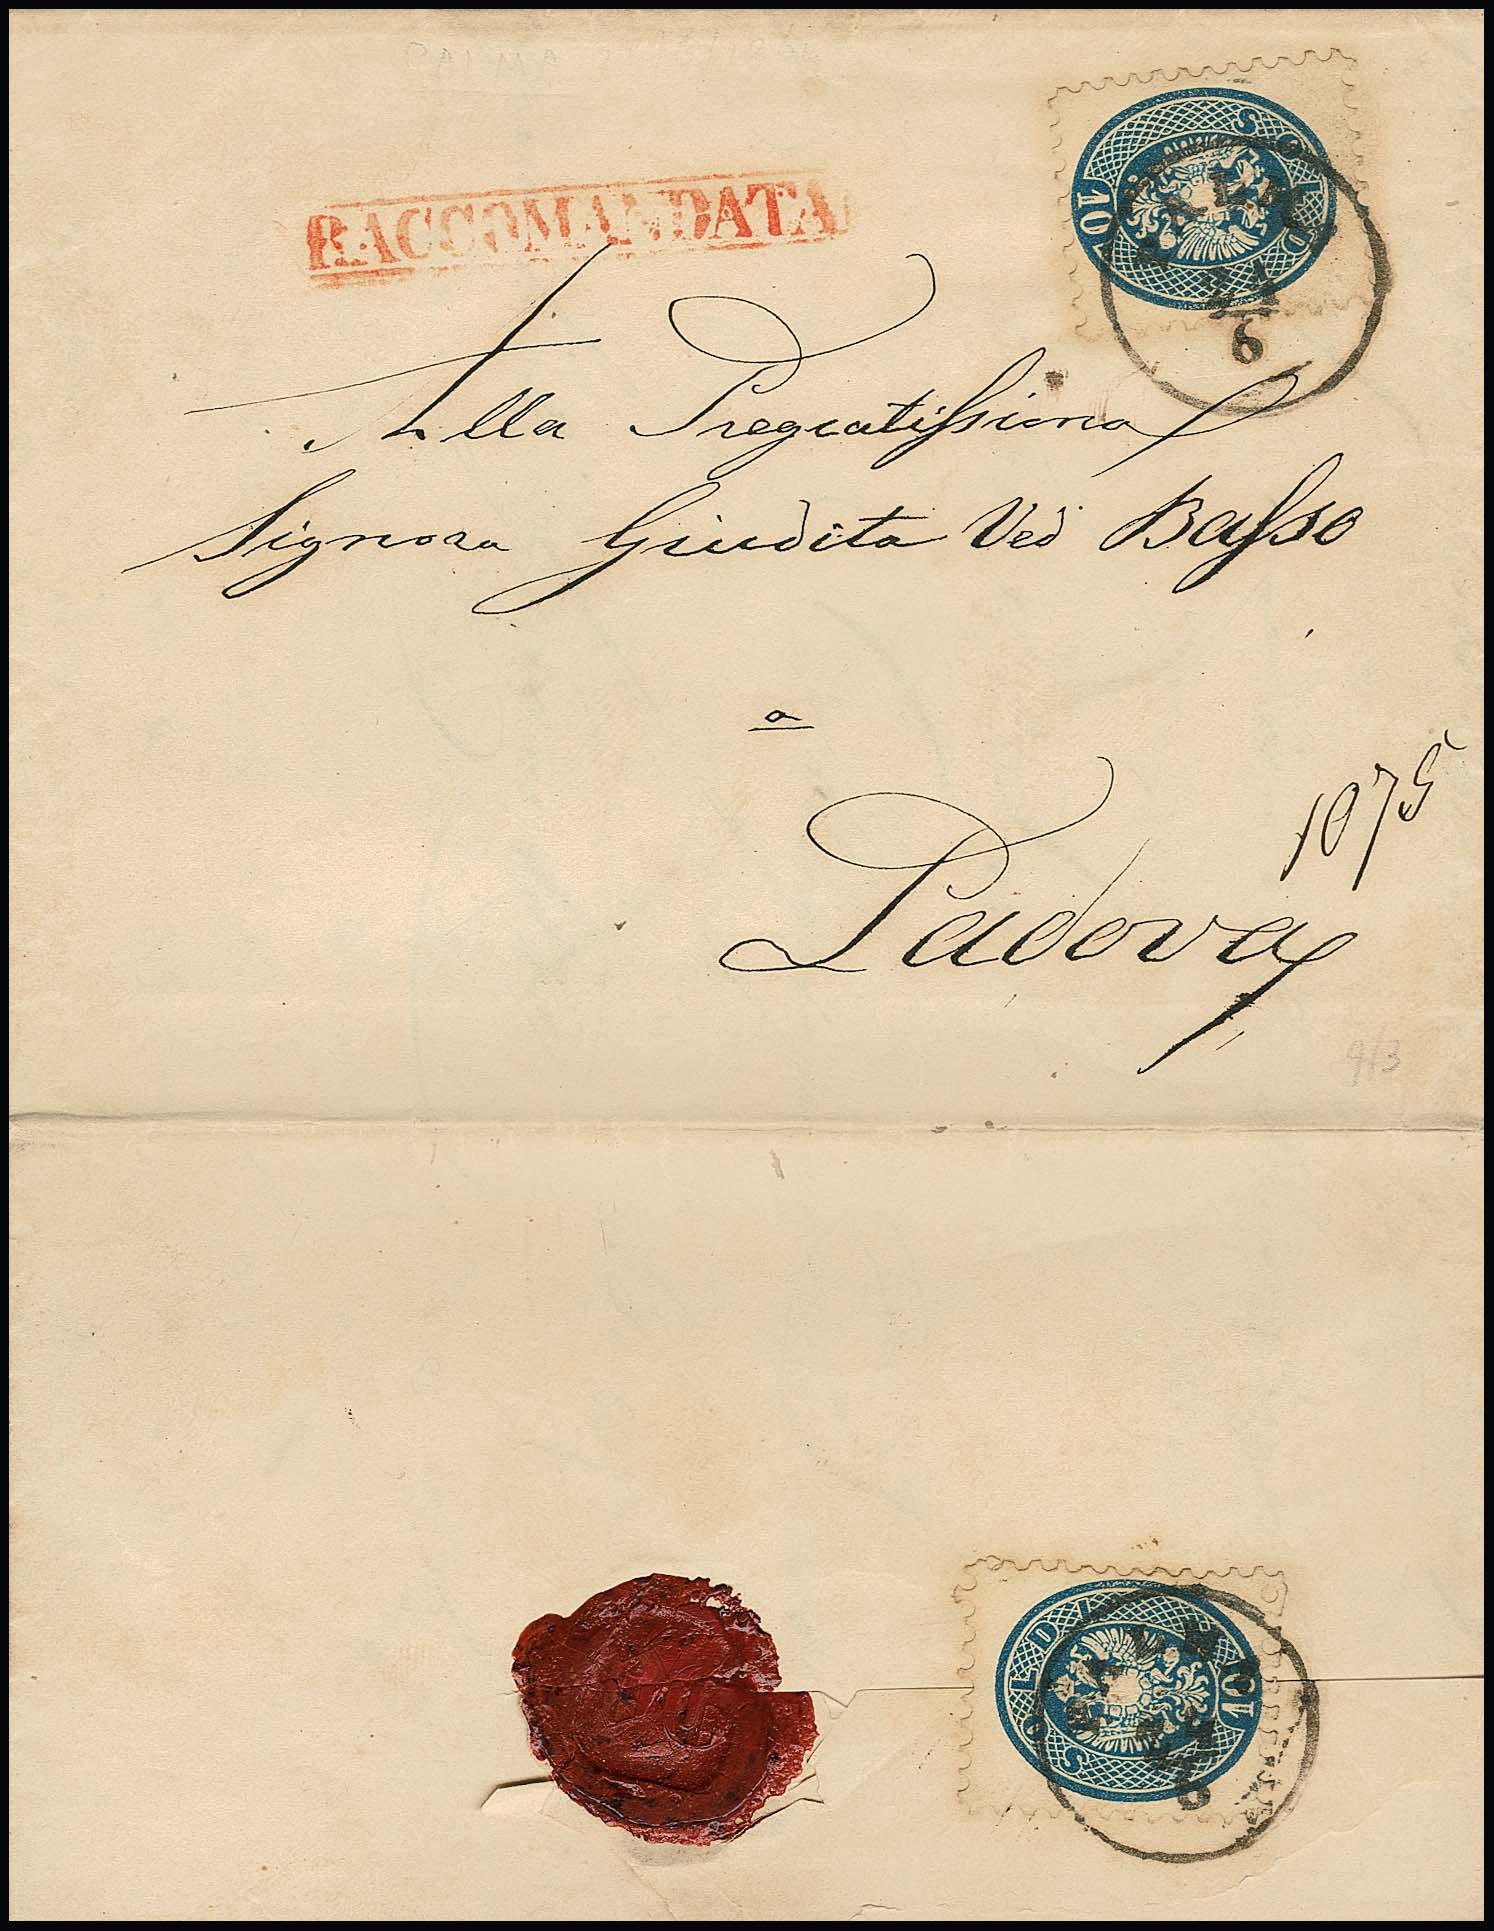 RACCOMANDATA
10 SOLDI
21
6
Alla Pregiatissima
Signora Giudita Ved Basso
a
Padova
1075
9/3
10 SOLDI
PALMA
21
6